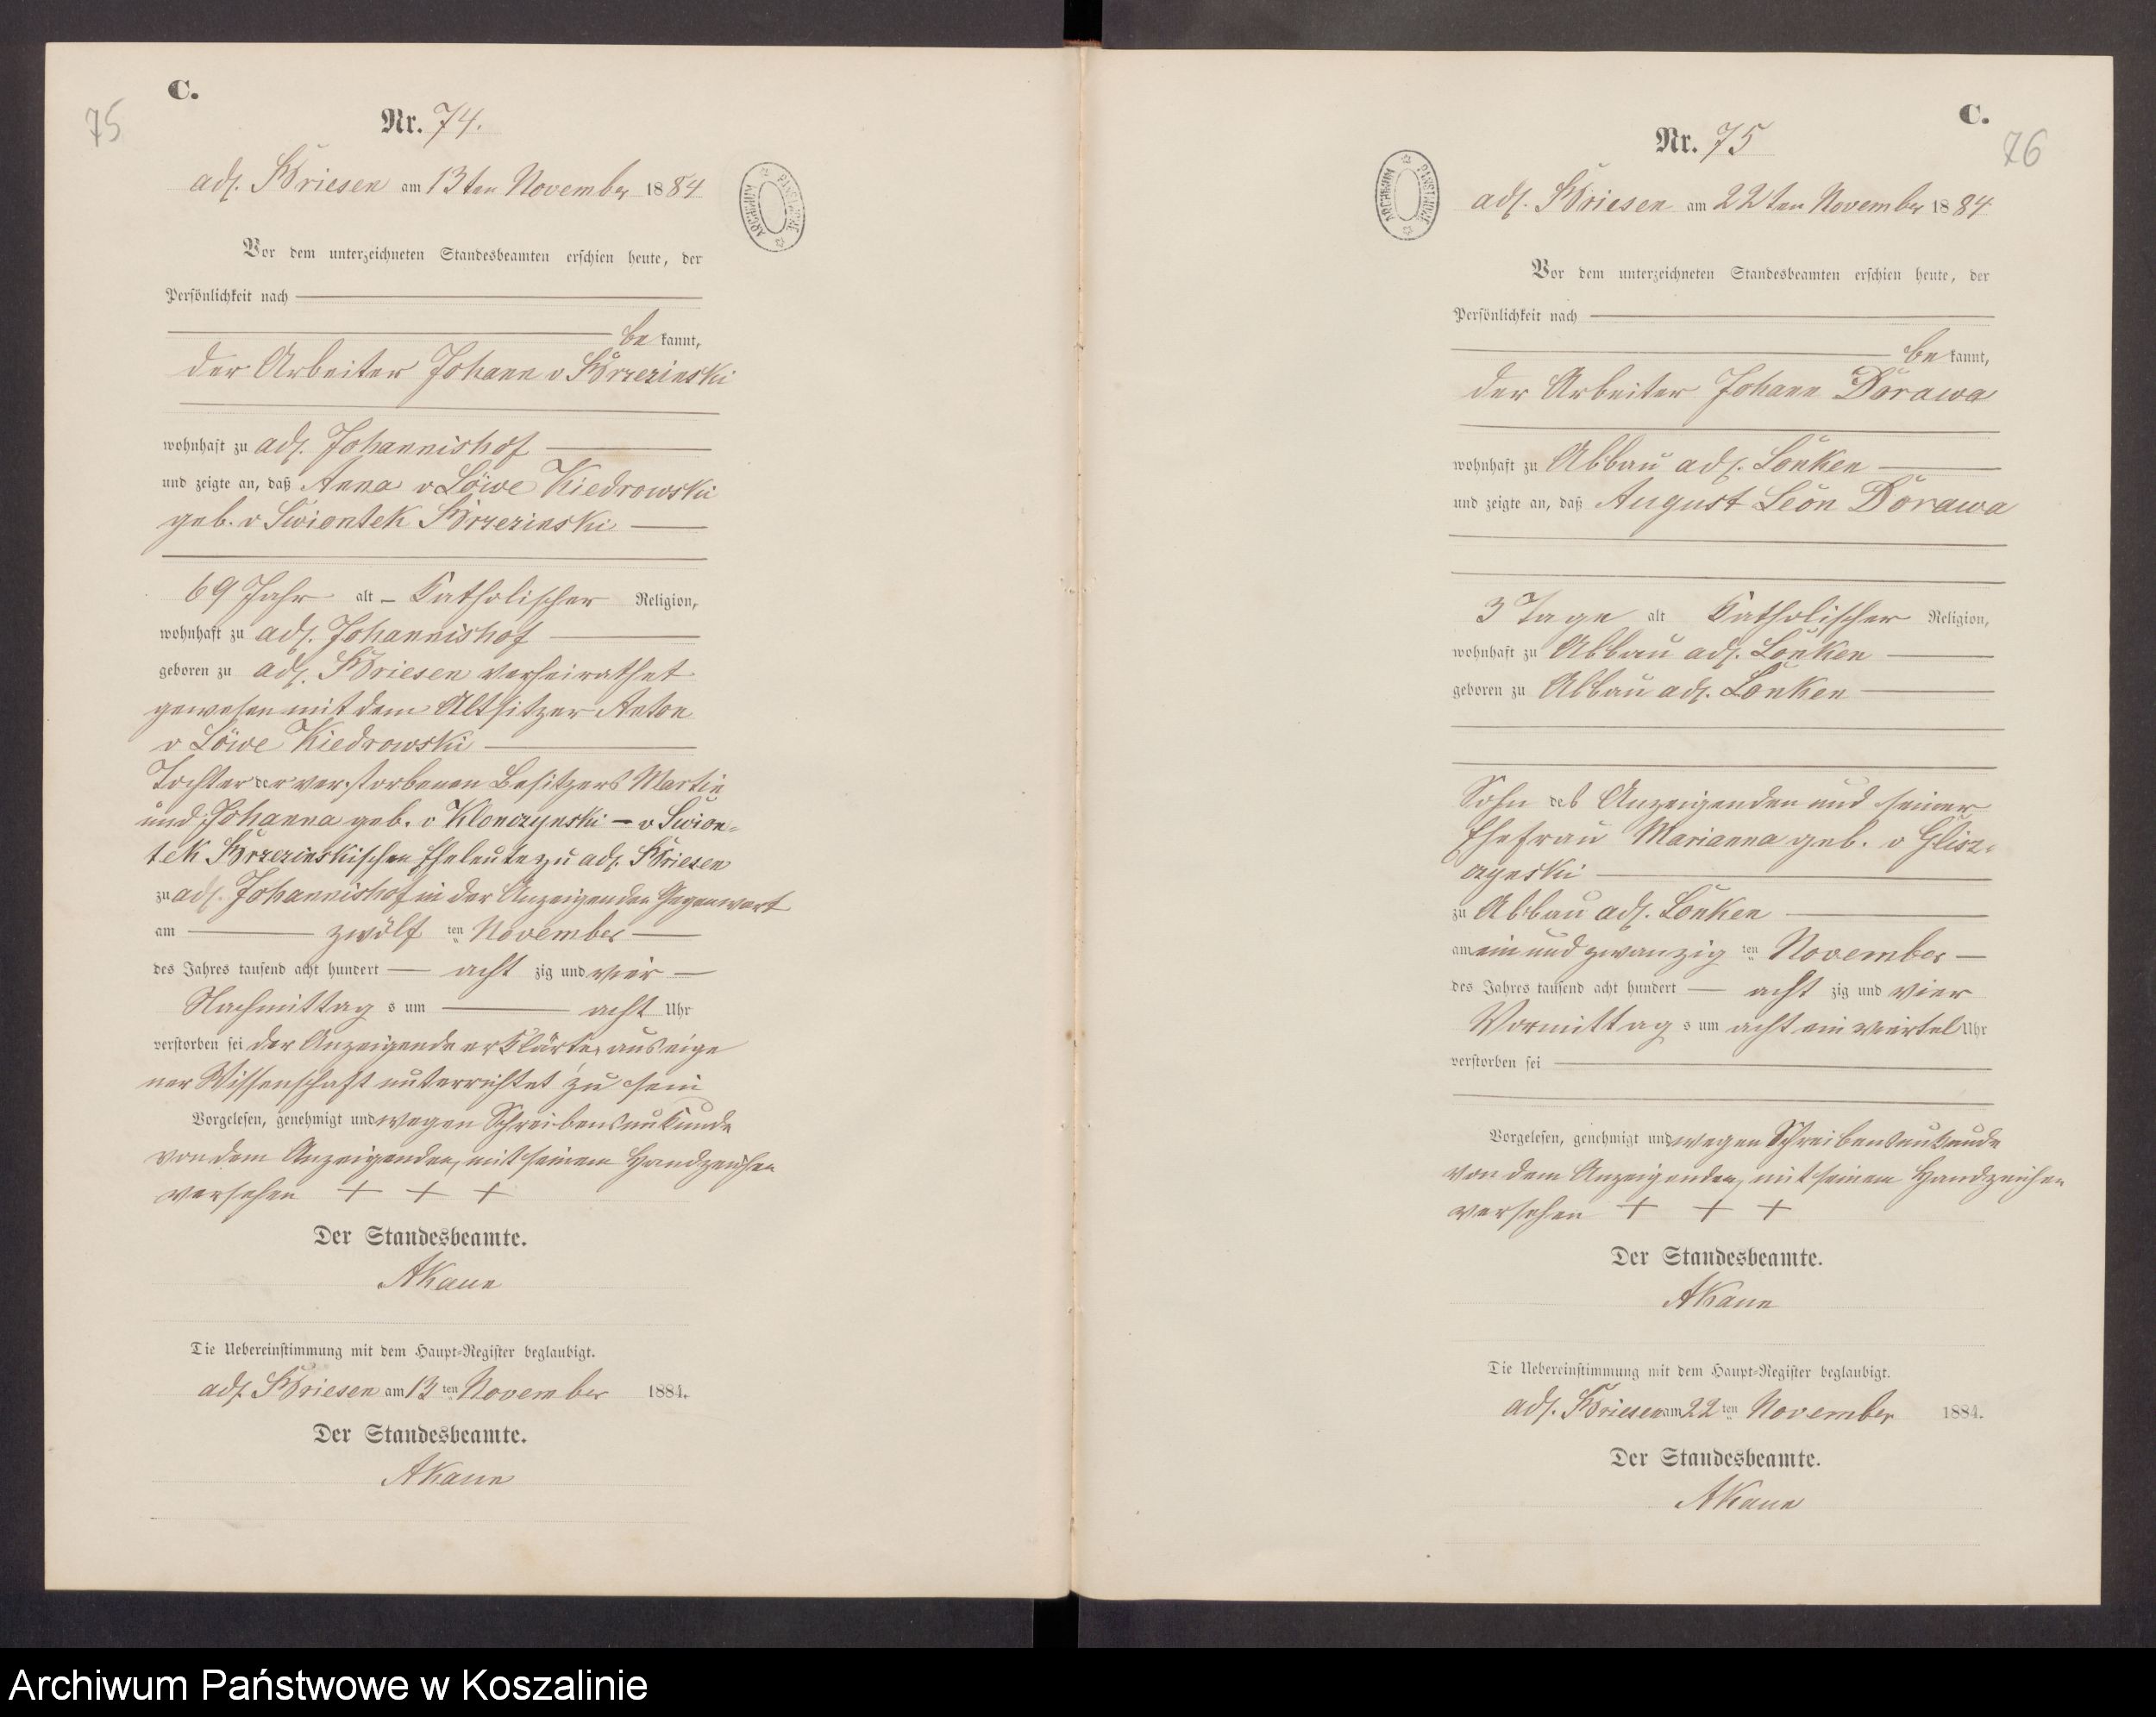 C.
75
Nr. 74.
adl. Briesen am 13ten November 1884
ARCHIWUM PAŃSTWOWE
Vor dem unterzeichneten Standesbeamten erschien heute, der
Persönlichkeit nach
be kannt,
der Arbeiter Johann v Brzezinski
wohnhaft zu adl. Johannishof
und zeigte an, daß Anna v Löwe Kiedrowski
geb. v Swiontek Brzezinski
69 Jahr alt – Katholischer Religion,
wohnhaft zu adl. Johannishof
geboren zu adl. Briesen verheirathet
gewesen mit dem Altsitzer Anton
v Löwe Kiedrowski
Tochter der verstorbenen Besitzers Martin
und Johanna geb. v Klonczynski – v Swion-
tek Brzezinskischen Eheleute zu adl. Briesen
zu adl. Johannishof in der Anzeigenden Gegenwart
am zwölf ten November
des Jahres tausend acht hundert acht zig und vier
Nachmittag s um acht Uhr
verstorben sei der Anzeigende erklärte, aus eige
ner Wissenschaft unterrichtet zu sein
Vorgelesen, genehmigt und wegen Schreibensunkunde
von dem Anzeigenden, mit seinem Handzeichen
versehen + + +
Der Standesbeamte.
AKaun
Die Uebereinstimmung mit dem Haupt-Register beglaubigt.
adl. Briesen am 13 ten November 1884.
Der Standesbeamte.
AKaun
C.
76
Nr. 75
adl. Briesen am 22ten November 1884
ARCHIWUM PAŃSTWOWE
Vor dem unterzeichneten Standesbeamten erschien heute, der
Persönlichkeit nach
be kannt,
der Arbeiter Johann Dorawa
wohnhaft zu Abbau adl. Lonken
und zeigte an, daß August Leon Dorawa
3 Tage alt Katholischer Religion,
wohnhaft zu Abbau adl. Lonken
geboren zu Abbau adl. Lonken
Sohn des Anzeigenden und seiner
Ehefrau Marianna geb. v Glisz-
czynski
zu Abbau adl. Lonken
am ein und zwanzig ten November
des Jahres tausend acht hundert acht zig und vier
Vormittag s um acht ein viertel Uhr
verstorben sei
Vorgelesen, genehmigt und wegen Schreibensunkunde
von dem Anzeigenden, mit seinem Handzeichen
versehen + + +
Der Standesbeamte.
AKaun
Die Uebereinstimmung mit dem Haupt-Register beglaubigt.
adl. Briesen am 22 ten November 1884.
Der Standesbeamte.
AKaun
Archiwum Państwowe w Koszalinie